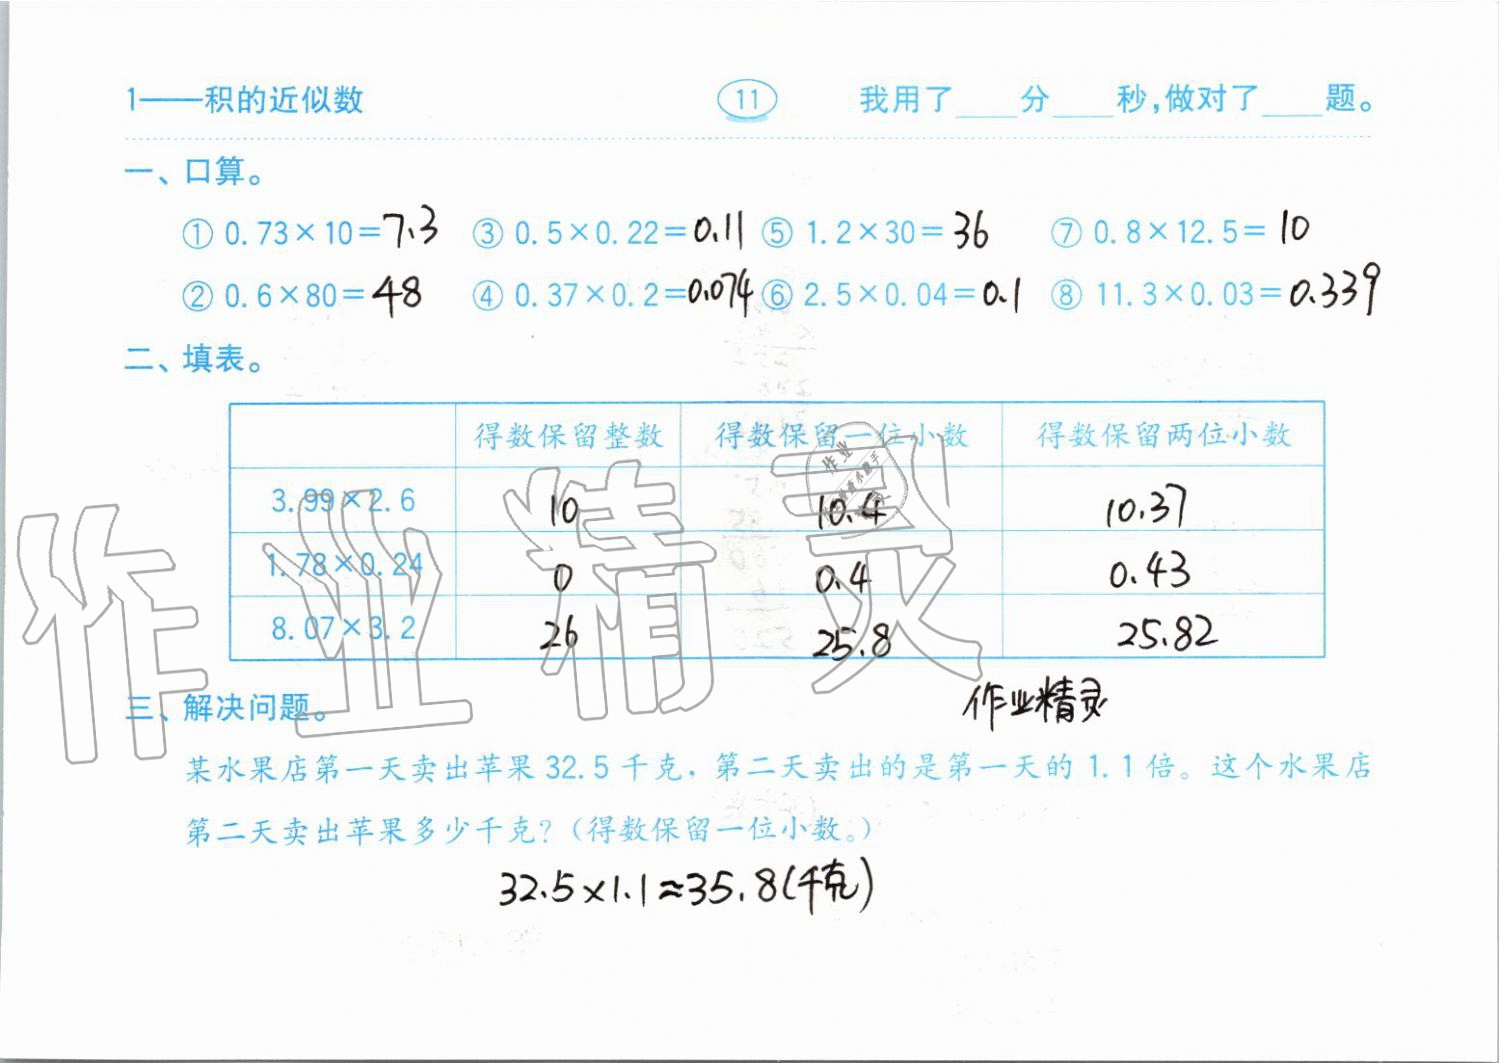 1——积的近似数 11 我用了____分____秒,做对了____题。
一、口算。
① 0.73×10=7.3 ③ 0.5×0.22=0.11 ⑤ 1.2×30=36 ⑦ 0.8×12.5=10
② 0.6×80=48 ④ 0.37×0.2=0.074 ⑥ 2.5×0.04=0.1 ⑧ 11.3×0.03=0.339
二、填表。
得数保留整数 得数保留一位小数 得数保留两位小数
3.99×2.6 10 10.4 10.37
1.78×0.24 0 0.4 0.43
8.07×3.2 26 25.8 25.82
作业精灵
三、解决问题。
作业精灵
某水果店第一天卖出苹果 32.5 千克,第二天卖出的是第一天的 1.1 倍。这个水果店
第二天卖出苹果多少千克?(得数保留一位小数。)
32.5×1.1≈35.8(千克)